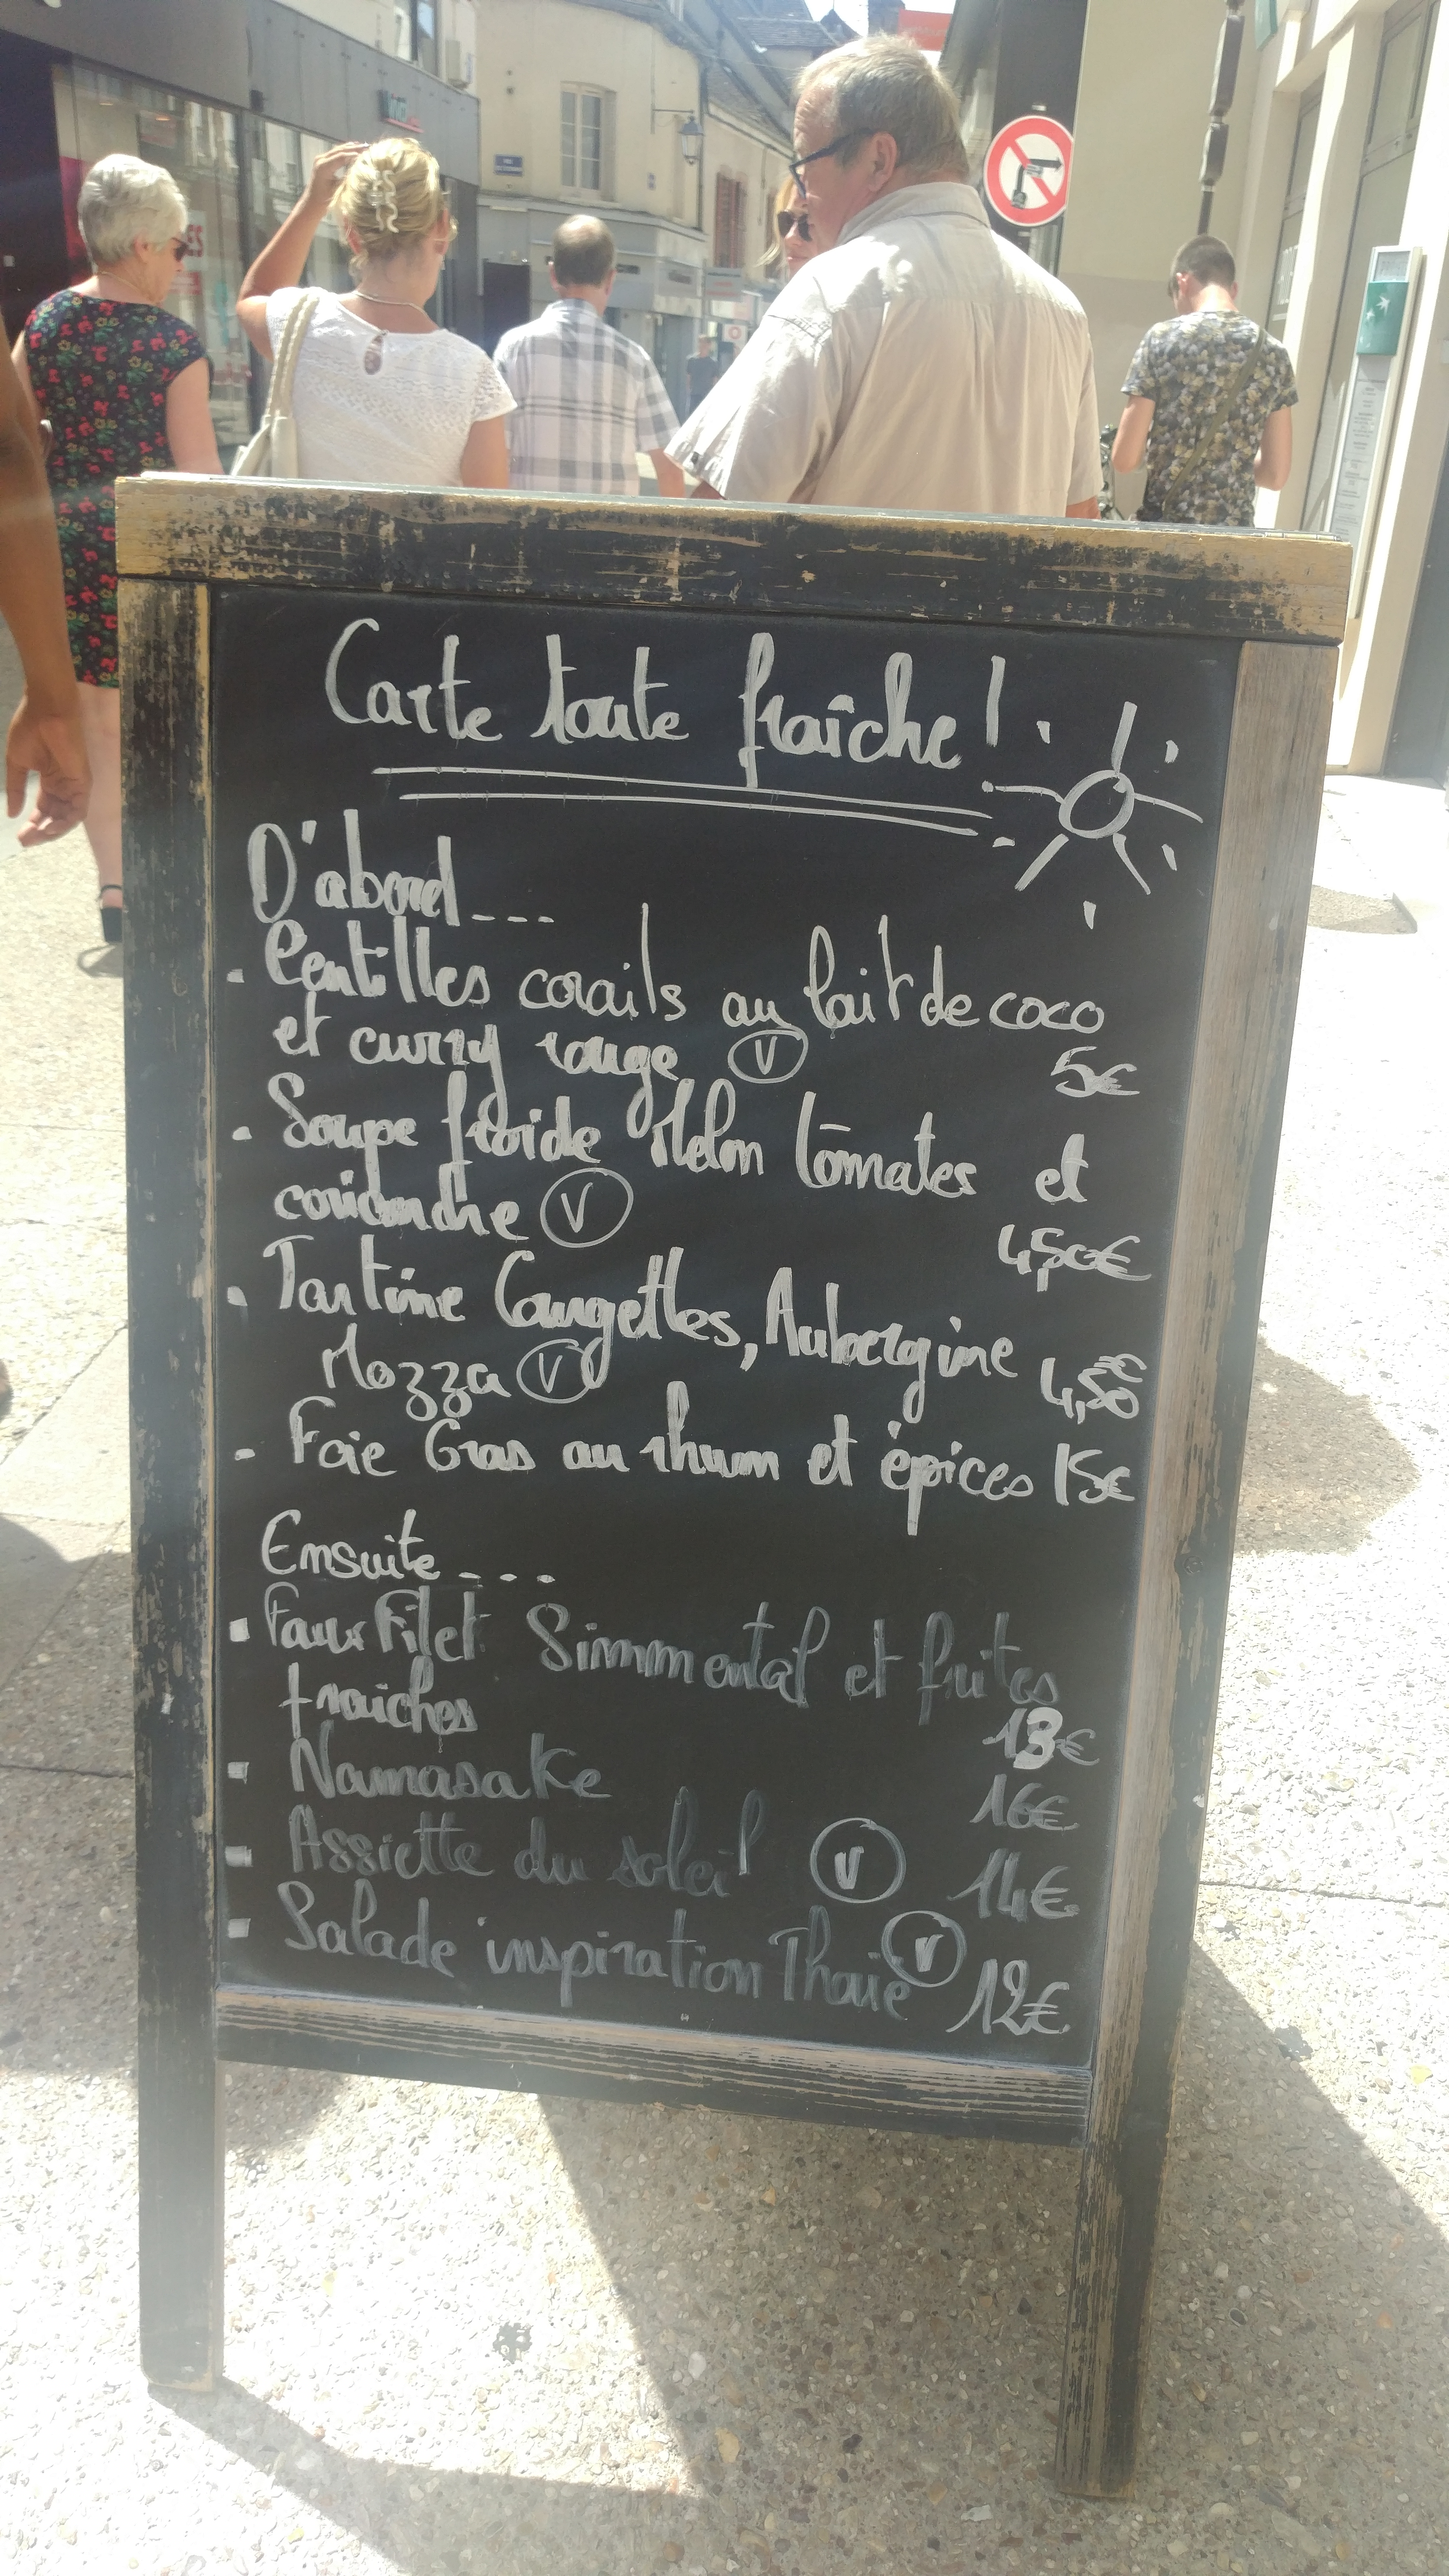 Carte toute fraîche !
D'abord...
. Lentilles corails au lait de coco
et curry rouge V 5€
. Soupe froide Melon tomates et
coriandre V 4,50€
. Tartine Courgettes, Aubergine
Mozza V 4,50€
- Foie Gras au rhum et épices 15€
Ensuite...
. Faux Filet Simmental et frites
fraiches 13€
- Namasake 16€
- Assiette du soleil V 14€
- Salade inspiration Thaïe V 12€